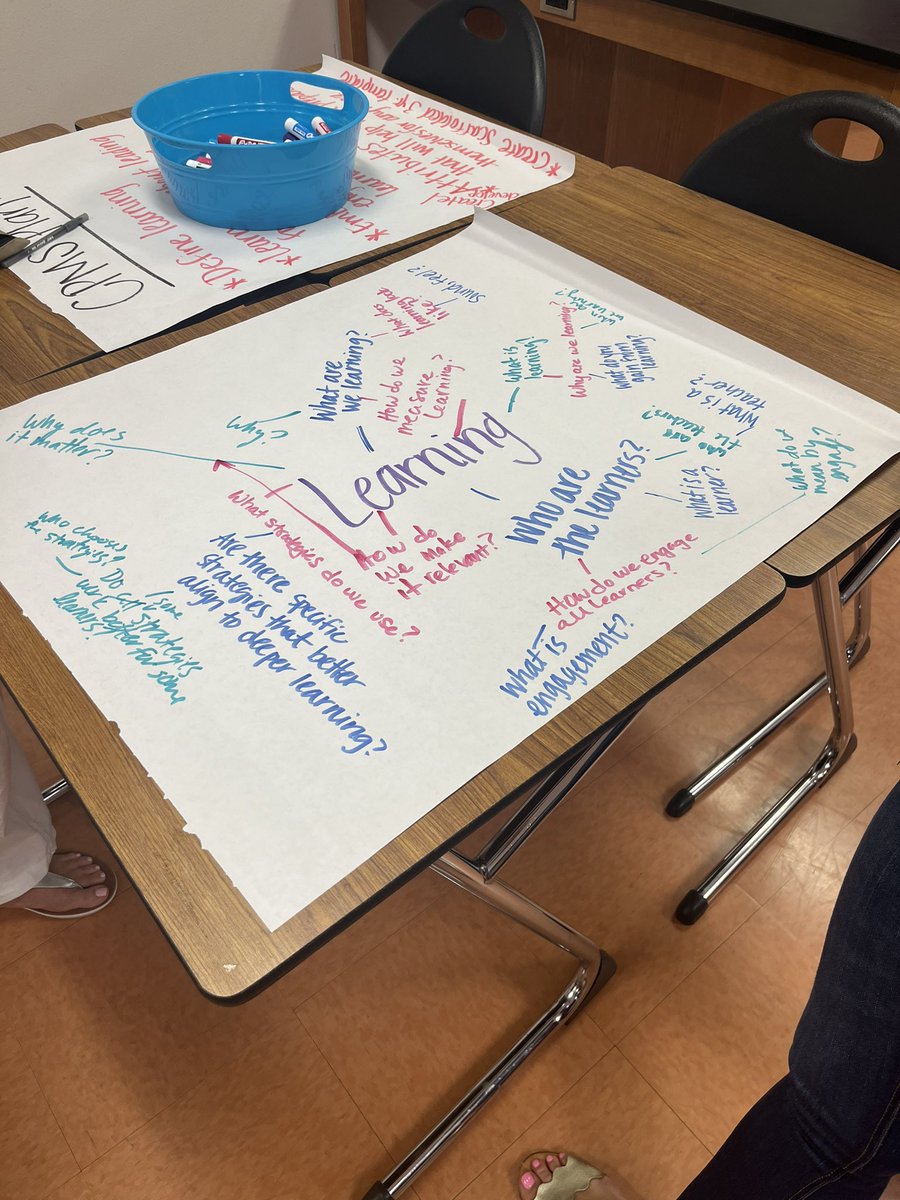 CPMS
*Define learning
*Create Scaffolded 3yr. template
themselves in any
that will
Attributes
Create/
develop
Learning
What are
we learning?
What does
learning look
like?
Sound, feel?
How do we
measure
Learning?
What is
learning?
Why are we learning?
we learning?
What do you
gain from
learning?
What is a
teacher?
Who are
the teachers?
What is a
learner?
Who are
the learners?
What do we
mean by
engage?
How do we engage
all learners?
What is
engagement?
How do
we make
it relevant?
What strategies do we use?
Are there specific
strategies that better
align to deeper learning?
Why?
Why does
it matter?
Who chooses
the strategies?
Do
strategies
work better for some